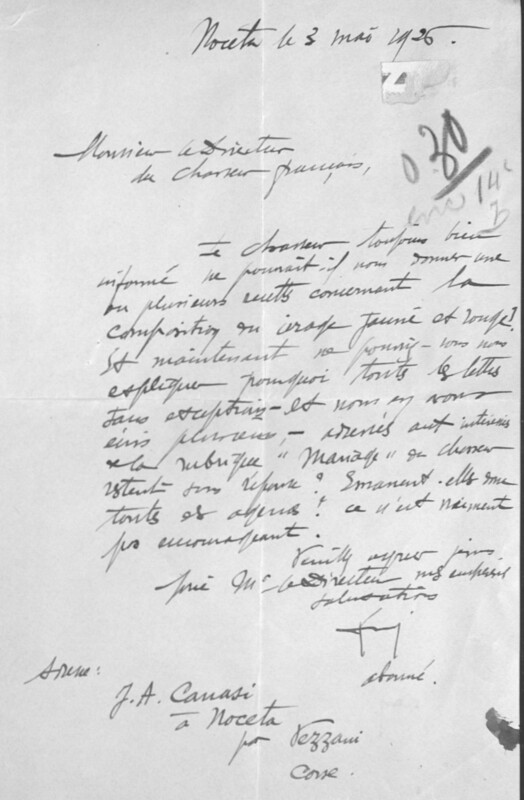 Noceta le 3 mai 1926.
Z
0.30
14
Monsieur le Directeur
du Chasseur français,
Le chasseur toujours bien
informé ne pourrait-il nous donner une
ou plusieurs recettes concernant la
composition du cirage jaune et rouge?
Et maintenant ne pourriez-vous nous
expliquer pourquoi toutes les lettres
sans exception - et nous en avons
écris plusieurs, - adressées aux intéressés
de la rubrique "Mariage" du chasseur
restent sans réponse? Emanent-elles donc
toutes des agences? ce n'est vraiment
pas encourageant.
Veuillez agréer, je vous
prie Mr le Directeur mes empressées
salutations
abonné.
adresse:
J. A. Canasi
à Noceta
par Vezzani
Corse.